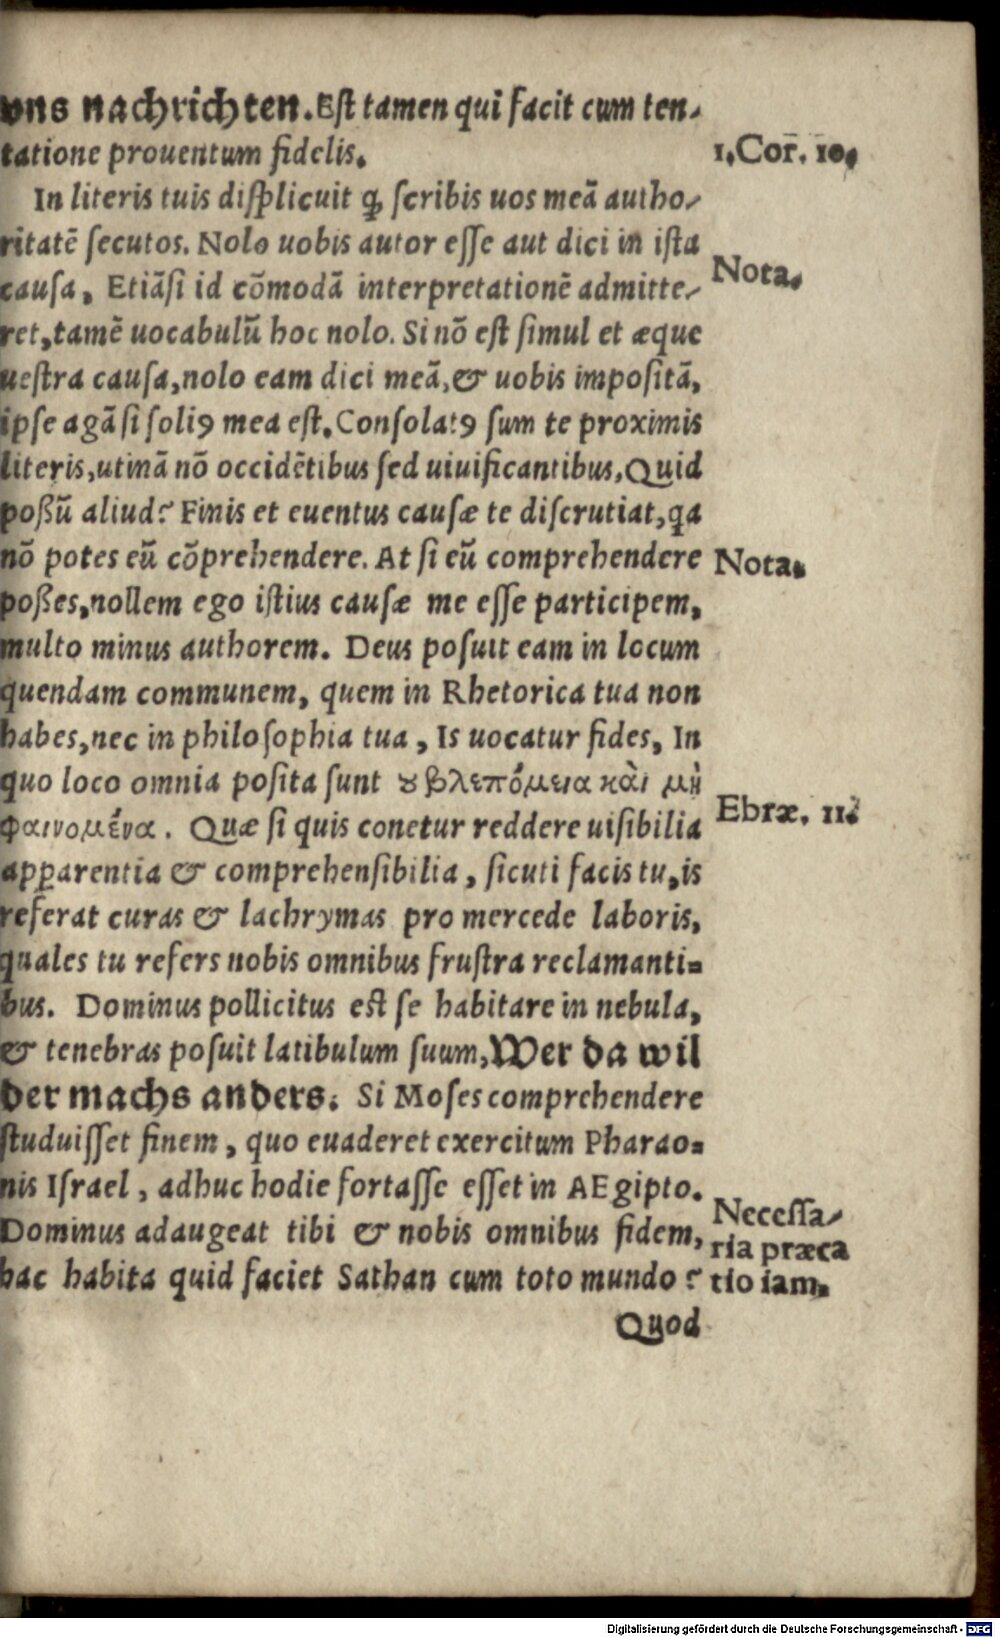 vns nachrichten. Est tamen qui facit cum ten-
tatione prouentum fidelis.
1. Cor. 10.
In literis tuis displicuit ꝙ scribis uos meã autho-
ritatẽ secutos. Nolo uobis autor esse aut dici in ista
Nota.
causa, Etiãsi id cõmodã interpretationẽ admitte-
ret, tamẽ uocabulũ hoc nolo. Si nõ est simul et æque
uestra causa, nolo eam dici meã, & uobis impositã,
ipse agã si soliꝰ mea est. Consolatꝰ sum te proximis
literis, utinã nõ occidẽtibus sed uiuificantibus. Quid
poßũ aliud? Finis et euentus causæ te discrutiat, qa
nõ potes eũ cõprehendere. At si eũ comprehendere
Nota.
poßes, nollem ego istius causæ me esse participem,
multo minus authorem. Deus posuit eam in locum
quendam communem, quem in Rhetorica tua non
habes, nec in philosophia tua, Is uocatur fides, In
quo loco omnia posita sunt ȣ βλεπόμεια κὰι μὴ
Ebræ. 11.
φαινομένα. Quæ si quis conetur reddere uisibilia
apparentia & comprehensibilia, sicuti facis tu, is
referat curas & lachrymas pro mercede laboris,
quales tu refers nobis omnibus frustra reclamanti=
bus. Dominus pollicitus est se habitare in nebula,
& tenebras posuit latibulum suum, Wer da wil
der machs anders. Si Moses comprehendere
studuisset finem, quo euaderet exercitum Pharao=
nis Israel, adhuc hodie fortasse esset in AEgipto.
Dominus adaugeat tibi & nobis omnibus fidem,
hac habita quid faciet Sathan cum toto mundo?
Necessa-
ria præca
tio iam.
Quod
Digitalisierung gefördert durch die Deutsche Forschungsgemeinschaft - DFG